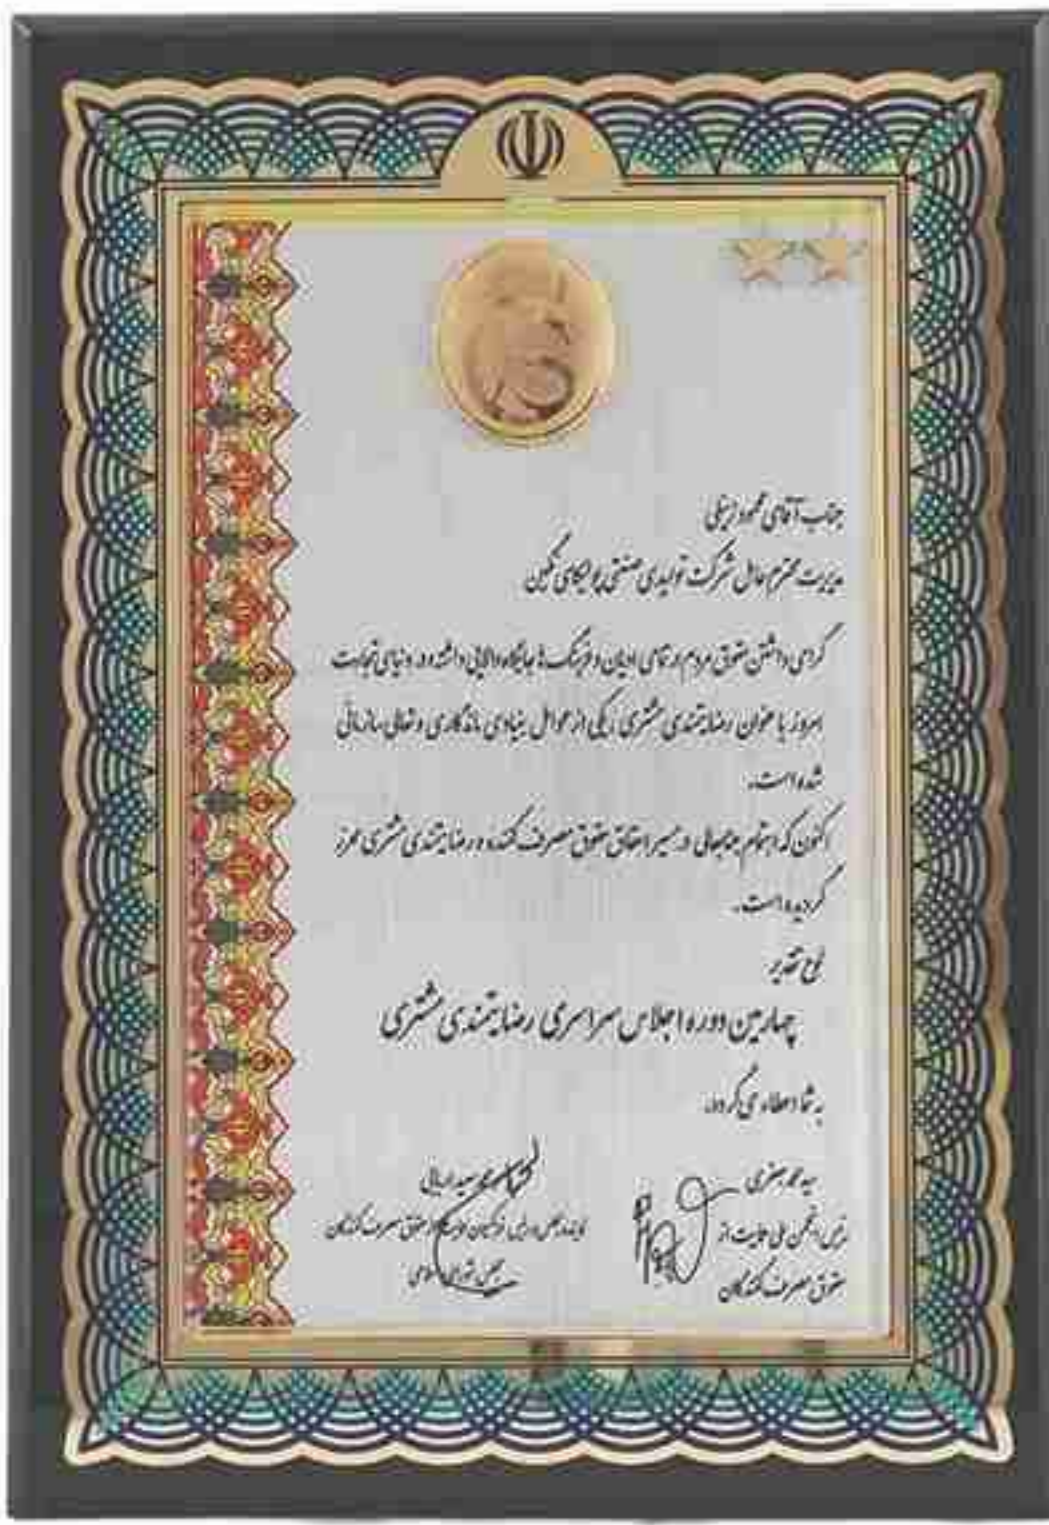 جناب آقای محمود زینلی
مدیریت محترم عامل شرکت تولیدی صنعتی پولیکای نگین
گرامی داشتن حقوق مردم در تمامی ادیان و فرهنگ ها جایگاه والایی داشته و در دنیای تجارت
امروز با عنوان رضایتمندی مشتری یکی از عوامل بنیادی ماندگاری و تعالی سازمانی
شده است.
اکنون که اهتمام جنابعالی در مسیر احقاق حقوق مصرف کننده و رضایتمندی مشتری محرز
گردیده است.
لوح تقدیر
چهارمین دوره اجلاس سراسری رضایتمندی مشتری
به شما اعطاء می گردد.
سید محمد جعفری
رئیس انجمن ملی حمایت از
حقوق مصرف کنندگان
نماینده مجلس و رئیس فراکسیون حقوق مصرف کنندگان
مجلس شورای اسلامی